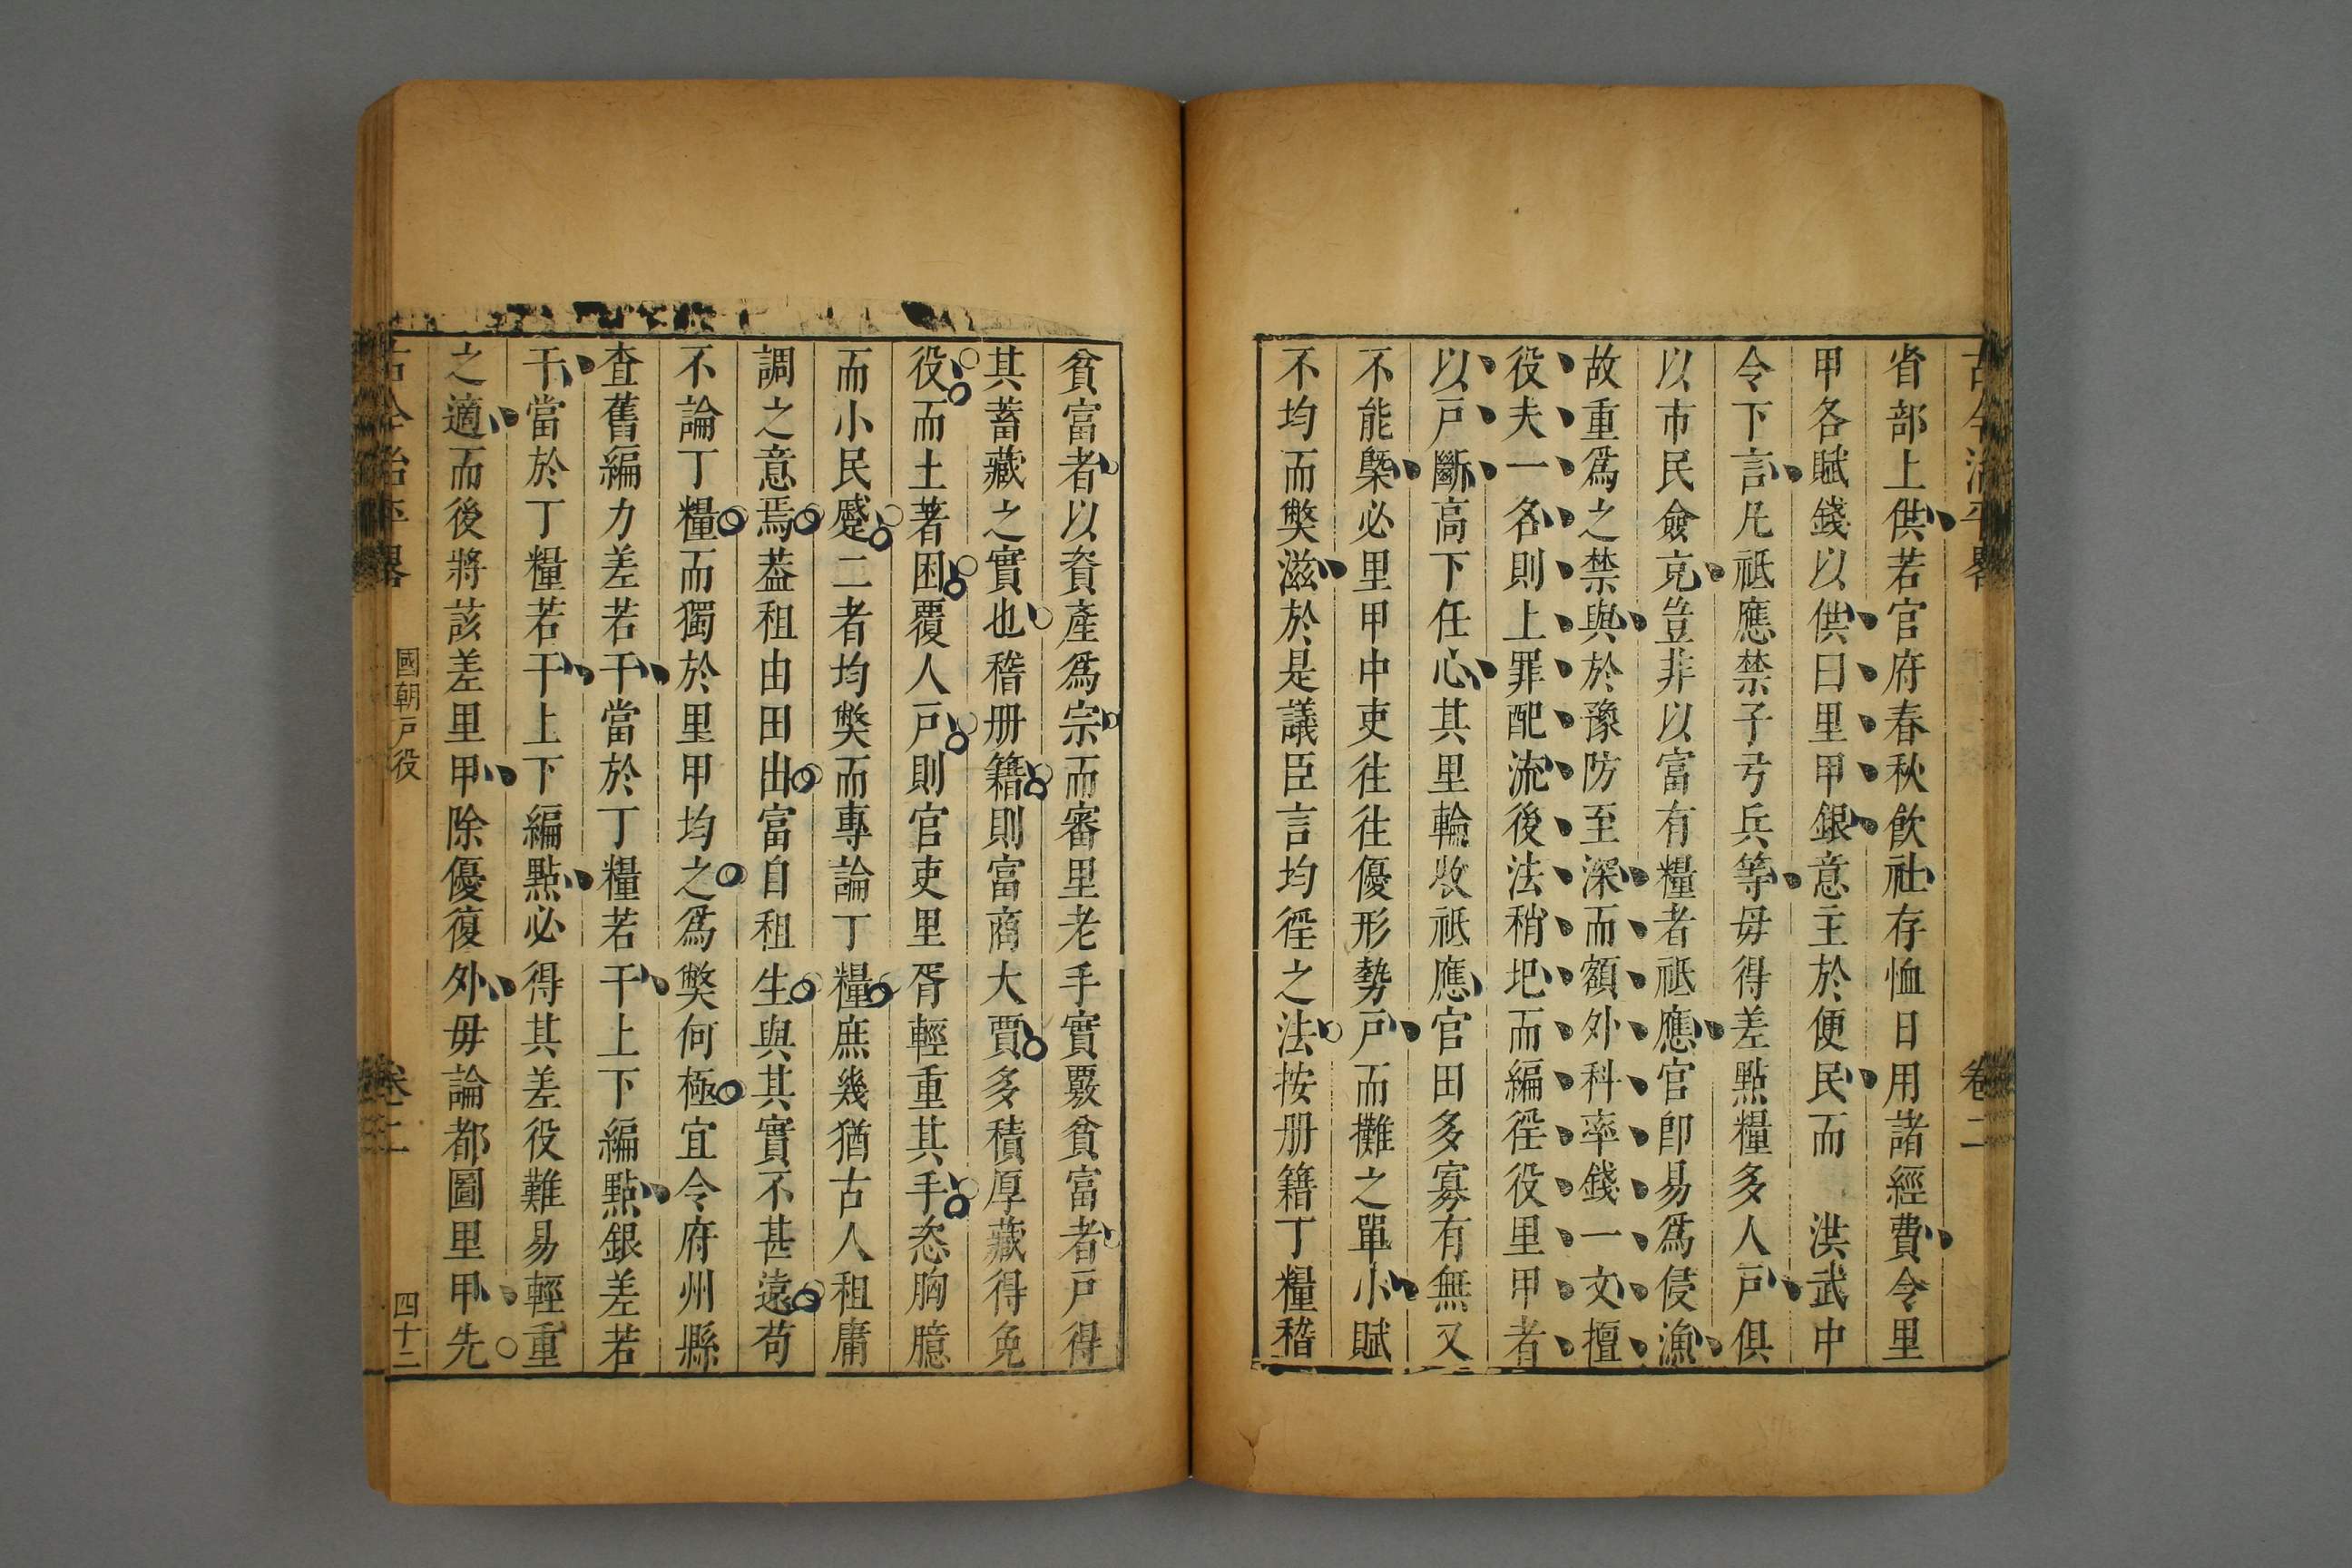 古今治平畧 卷二
省部上供若官府春秋飲社存恤日用諸經費令里
甲各賦錢以供曰里甲銀意主於便民而 洪武中
令下言凡祗應禁子弓兵等毋得差點糧多人戶俱
以市民僉克豈非以富有糧者祗應官卽易爲侵漁
故重爲之禁與於豫防至深而額外科率錢一文擅
役夫一名則上罪配流後法稍圯而編徑役里甲者
以戶斷高下任心其里輪收祗應官田多寡有無又
不能槩必里甲中吏往往優形勢戶而攤之單小賦
不均而獘滋於是議臣言均徑之法按册籍丁糧稽
貧富者以資產爲宗而審里老手實覈貧富者戶得
其蓄藏之實也稽册籍則富商大賈多積厚藏得免
役而土著困覆人戶則官吏里胥輕重其手恣胸臆
而小民蹙二者均獘而專論丁糧庶幾猶古人租庸
調之意焉葢租由田出富自租生與其實不甚遠苟
不論丁糧而獨於里甲均之爲獘何極宜令府州縣
查舊編力差若干當於丁糧若干上下編點銀差若
干當於丁糧若干上下編點必得其差役難易輕重
之適而後將該差里甲除優復外毋論都圖里甲先
古今治平畧 國朝戶役 卷二 四十二